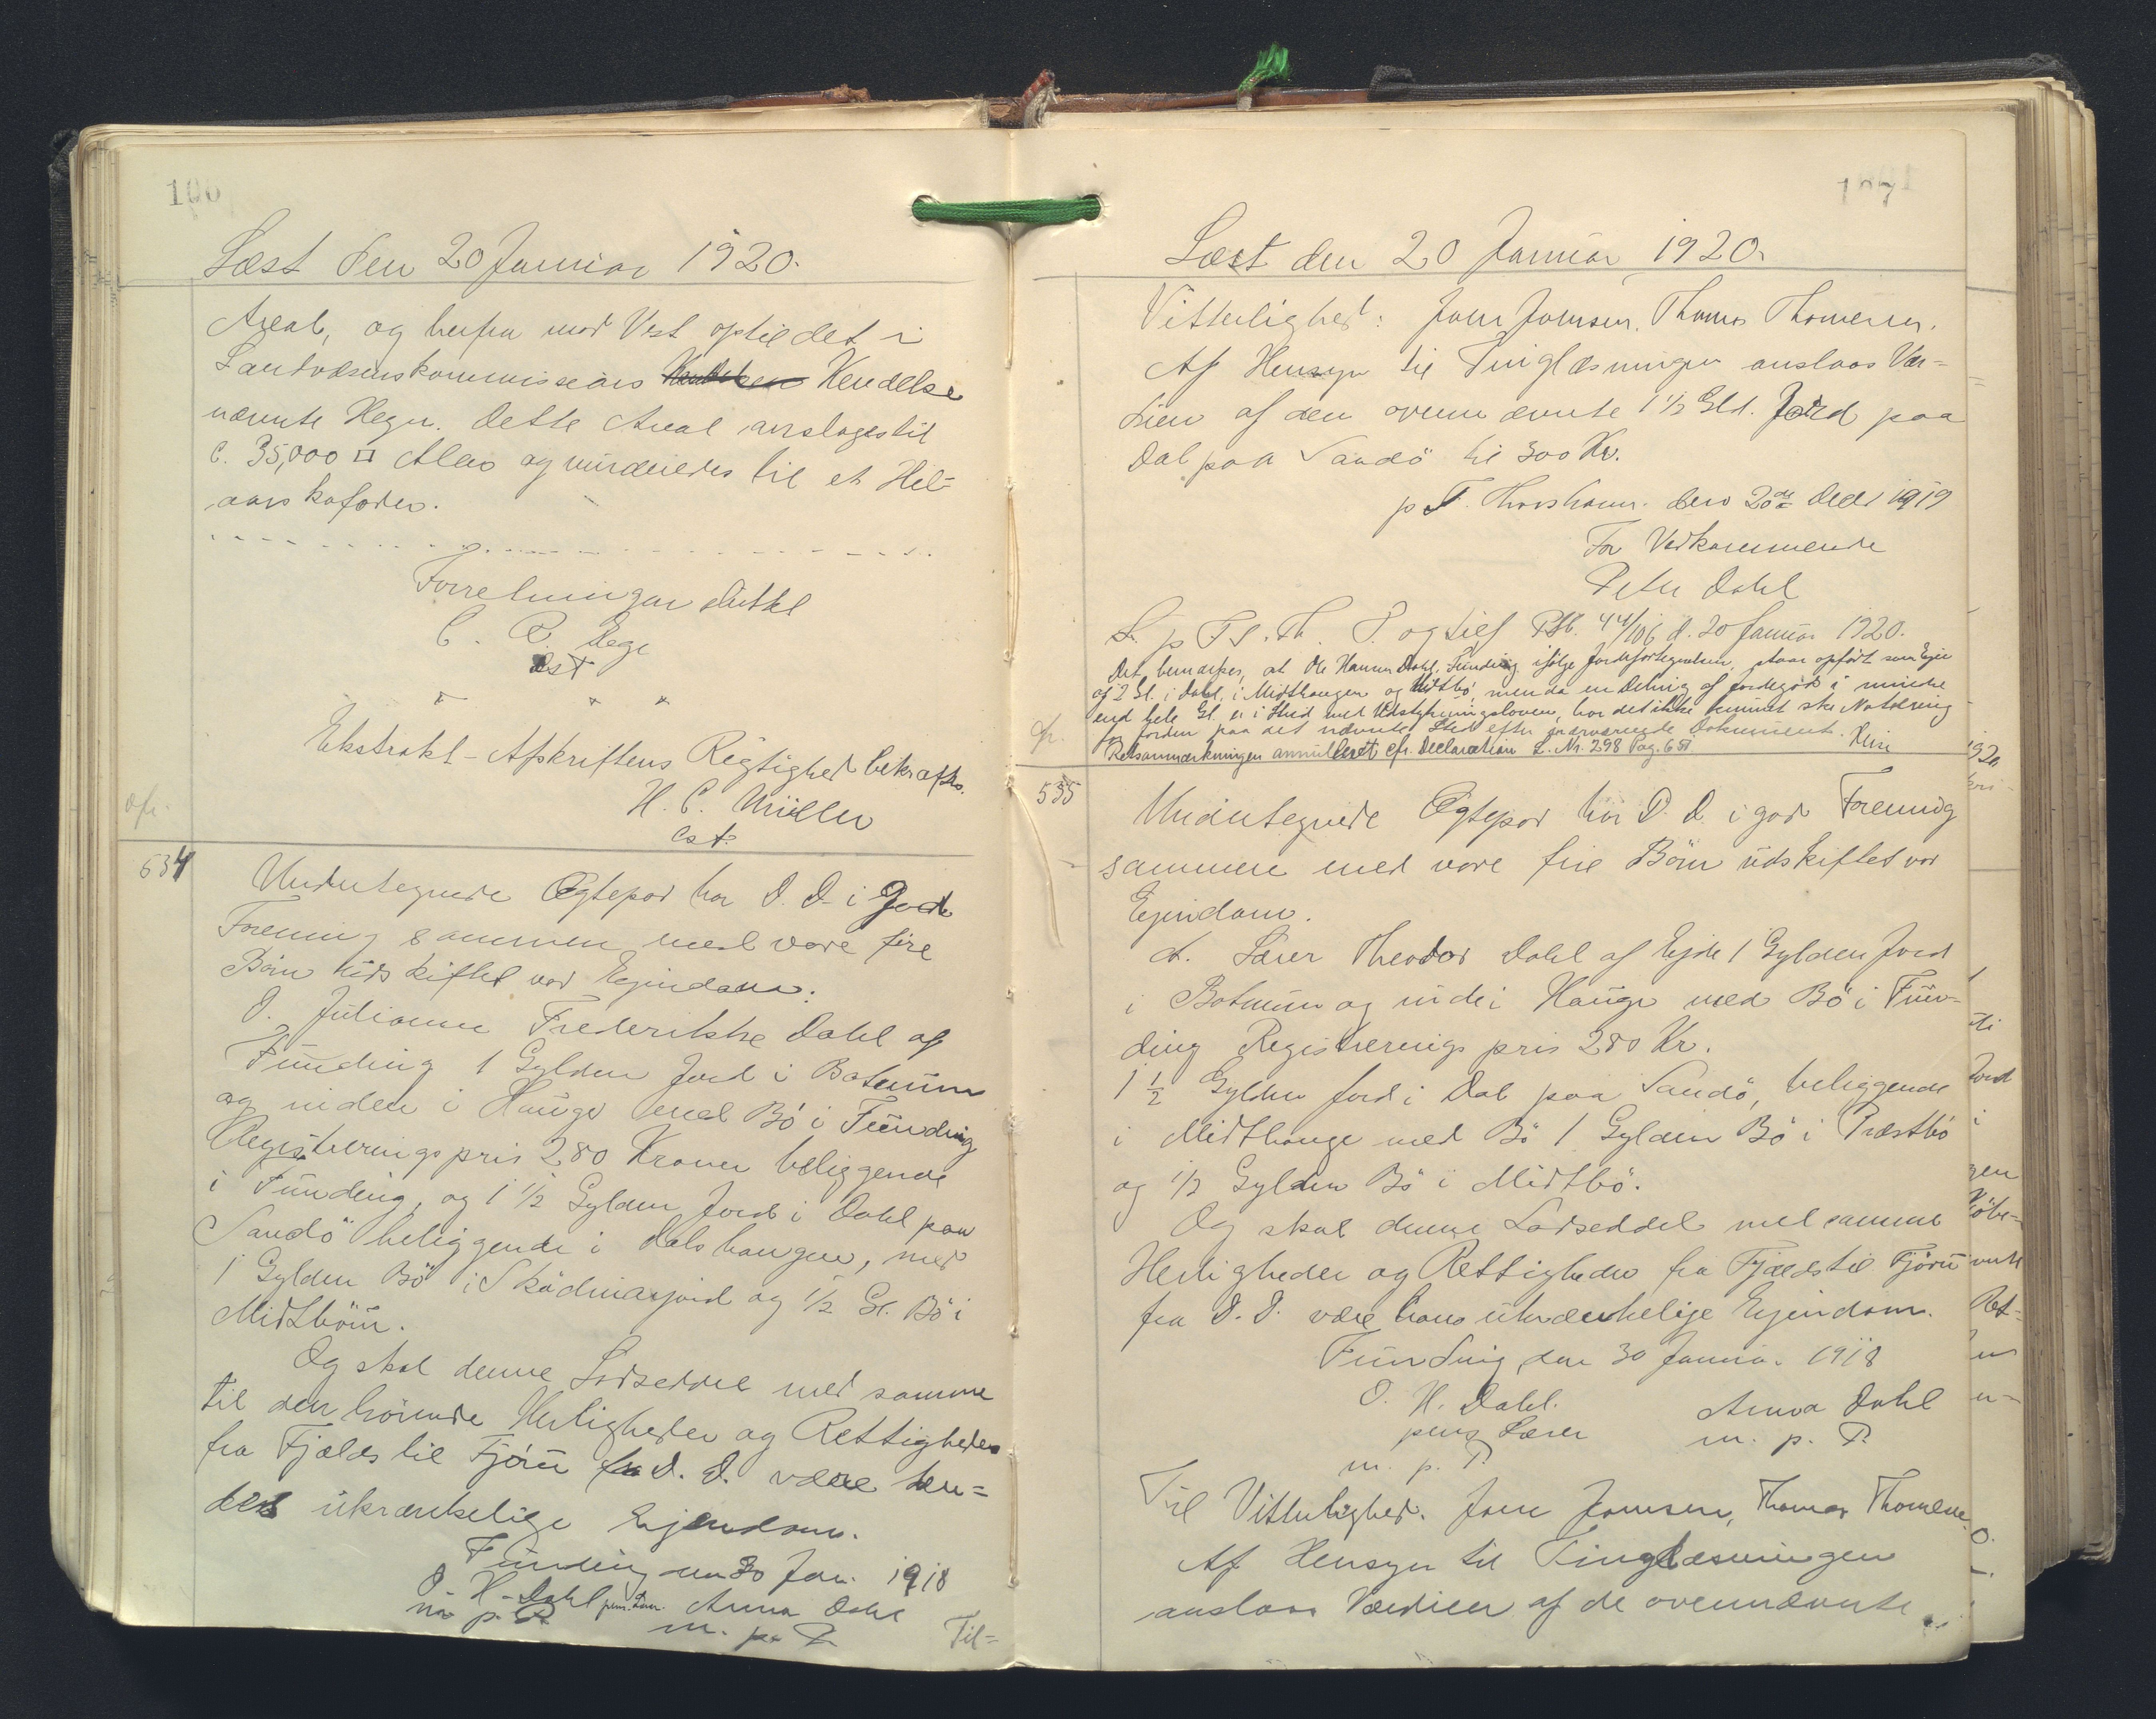 106
Læst den 20 Januar 1920.
Areal, og herfra mod Vest optil det i
Landvæsenskommissions Kendelse
nævnte Hegn. Dette Areal ansloges til
c. 35,000 □ Alen og vurderedes til et Hel-
aars kofoder.
Forretningen sluttet
C. P. Eege
cst
Ekstrakt-Afskriftens Rigtighed bekræftes.
H. C. Müller
cst.
534
Undertegnede Ægtepar har D. D. i god
Forening sammen med vore fire
Börn udskiftet vor Ejendom:
D. Julianne Frederikke Dahl af
Funding 1 Gylden Jord i Botnum
og niden i Hauge med Bö i Funding
Registreringspris 280 Kroner beliggende
i Funding, og 1 1/2 Gylden Jord i Dahl paa
Sandö beliggende i Dals haugen, med
1 Gylden Bö i Sködmasjord og 1/2 Gl. Bö i
Midtböur.
Og skal denne Lodseddel med samme
til den hörende Herligheder og Rettigheder
fra Fjælds til Fjöru fra D. D. være hen-
des ukrænkelige Ejendom.
Funding den 30 Jan. 1918
O. H. Dahl pens. Lær. Anna Dahl
m. p. P. m. p. P.
Til-
107
Læst den 20 Januar 1920.
Vitterlighed: Joen Joensen. Thomas Thomesen.
Af Hensyn til Tinglæsningen anslaas Vær-
dien af den ovennævnte 1 1/2 Gld. Jord paa
Dal paa Sandö til 300 Kr.
p. T. Thorshavn. den 20de Decbr 1919
For Vedkommende
Peter Dahl
L. p. F. S. Th. P. og Lief PSB. 44/106 d. 20 Januar 1920.
Det bemærkes, at Ole Hannes Dahl, Funding ifølge Jordefortegnelsen, staar opfört som Ejer
af 2 Gl. i Dahl, i Midthaugen og Midtbö, men da en Deling af Jordegods i mindre
end hele Gl. er i Strid med Udstykningsloven, har det ikke kunnet ske Notering
for Jorden paa det nævnte Sted efter nærværende Dokument.
Retsanmærkningen annulleret cfr. Declaration L. Nr. 298 Pag. 651.
535
Undertegnede Ægtepar har D. D. i god Forening
sammen med vore fire Börn udskiftet vor
Ejendom.
A. Lærer Theodor Dahl af Ejde 1 Gylden Jord
i Botnum og nide i Hauge med Bö i Fun-
ding Registrerings pris 280 Kr.
1 1/2 Gylden Jord i Dal paa Sandö, beliggende
i Midthauge med Bö 1 Gylden Bö i Præstbö
og 1/2 Gylden Bö i Midtbö.
Og skal denne Lodseddel med samme
Herligheder og Rettigheder fra Fjælds til Fjöru
fra D. D. være hans ukrænkelige Ejendom.
Funding, den 30 Januar 1918
O. H. Dahl. Anna Dahl
pens. Lærer m. p. P.
m. p. P.
Til Vitterlighed. Joen Joensen, Thomas Thomesen.
Af Hensyn til Tinglæsningen
anslaas Værdien af de ovennævnte